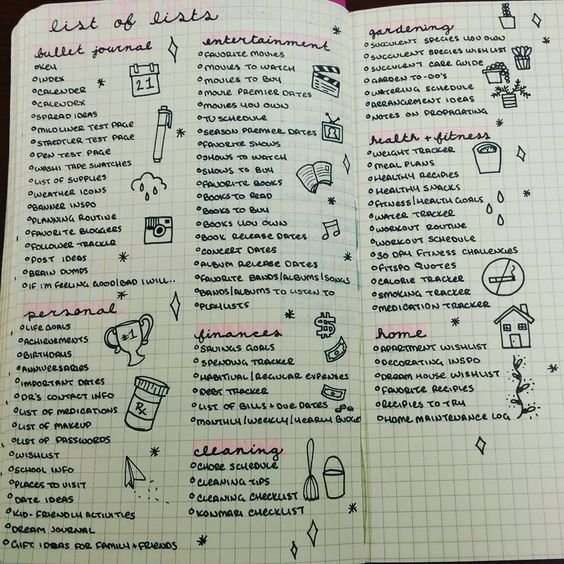 list of lists
bullet journal
KEY
INDEX
CALENDER
CALENDEX
SPREAD IDEAS
MILDLINER TEST PAGE
STAEDTLER TEST PAGE
PEN TEST PAGE
WASHI TAPE SWATCHES
LIST OF SUPPLIES
WEATHER ICONS
BANNER INSPO
PLANNING ROUTINE
FAVORITE BLOGGERS
FOLLOWER TRACKER
POST IDEAS
BRAIN DUMPS
IF I'M FEELING GOOD/BAD I WILL...
21
personal
LIFE GOALS
ACHIEVEMENTS
BIRTHDAYS
ANNIVERSARIES
IMPORTANT DATES
DR'S CONTACT INFO
LIST OF MEDICATIONS
LIST OF MAKEUP
LIST OF PASSWORDS
WISHLIST
SCHOOL INFO
PLACES TO VISIT
DATE IDEAS
KID-FRIENDLY ACTIVITIES
DREAM JOURNAL
GIFT IDEAS FOR FAMILY + FRIENDS
#1
Rx
entertainment
FAVORITE MOVIES
MOVIES TO WATCH
MOVIES TO BUY
MOVIE PREMIER DATES
MOVIES YOU OWN
TV SCHEDULE
SEASON PREMIER DATES
FAVORITE SHOWS
SHOWS TO WATCH
SHOWS TO BUY
FAVORITE BOOKS
BOOKS TO READ
BOOKS TO BUY
BOOKS YOU OWN
BOOK RELEASE DATES
CONCERT DATES
ALBUM RELEASE DATES
FAVORITE BANDS/ALBUMS/SONGS
BANDS/ALBUMS TO LISTEN TO
PLAYLISTS
finances
SAVINGS GOALS
SPENDING TRACKER
HABITUAL/REGULAR EXPENSES
DEBT TRACKER
LIST OF BILLS + DUE DATES
MONTHLY/WEEKLY/YEARLY BUDGET
$
cleaning
CHORE SCHEDULE
CLEANING TIPS
CLEANING CHECKLIST
KONMARI CHECKLIST
gardening
SUCCULENT SPECIES YOU OWN
SUCCULENT SPECIES WISHLIST
SUCCULENT CARE GUIDE
GARDEN TO-DO'S
WATERING SCHEDULE
ARRANGEMENT IDEAS
NOTES ON PROPAGATING
health + fitness
WEIGHT TRACKER
MEAL PLANS
HEALTHY RECIPES
HEALTHY SNACKS
FITNESS/HEALTH GOALS
WATER TRACKER
WORKOUT ROUTINE
WORKOUT SCHEDULE
30 DAY FITNESS CHALLENGES
FITSPO QUOTES
CALORIE TRACKER
SMOKING TRACKER
MEDICATION TRACKER
home
APARTMENT WISHLIST
DECORATING INSPO
DREAM HOUSE WISHLIST
FAVORITE RECIPES
RECIPES TO TRY
HOME MAINTENANCE LOG